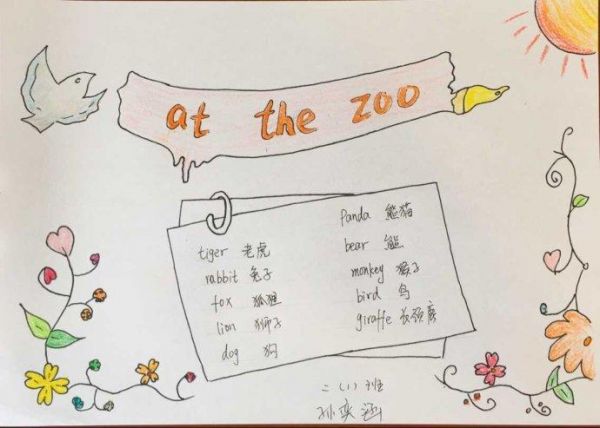 at the zoo
tiger 老虎
rabbit 兔子
fox 狐狸
lion 狮子
dog 狗
Panda 熊猫
bear 熊
monkey 猴子
bird 鸟
giraffe 长颈鹿
二（1）班
孙奕涵